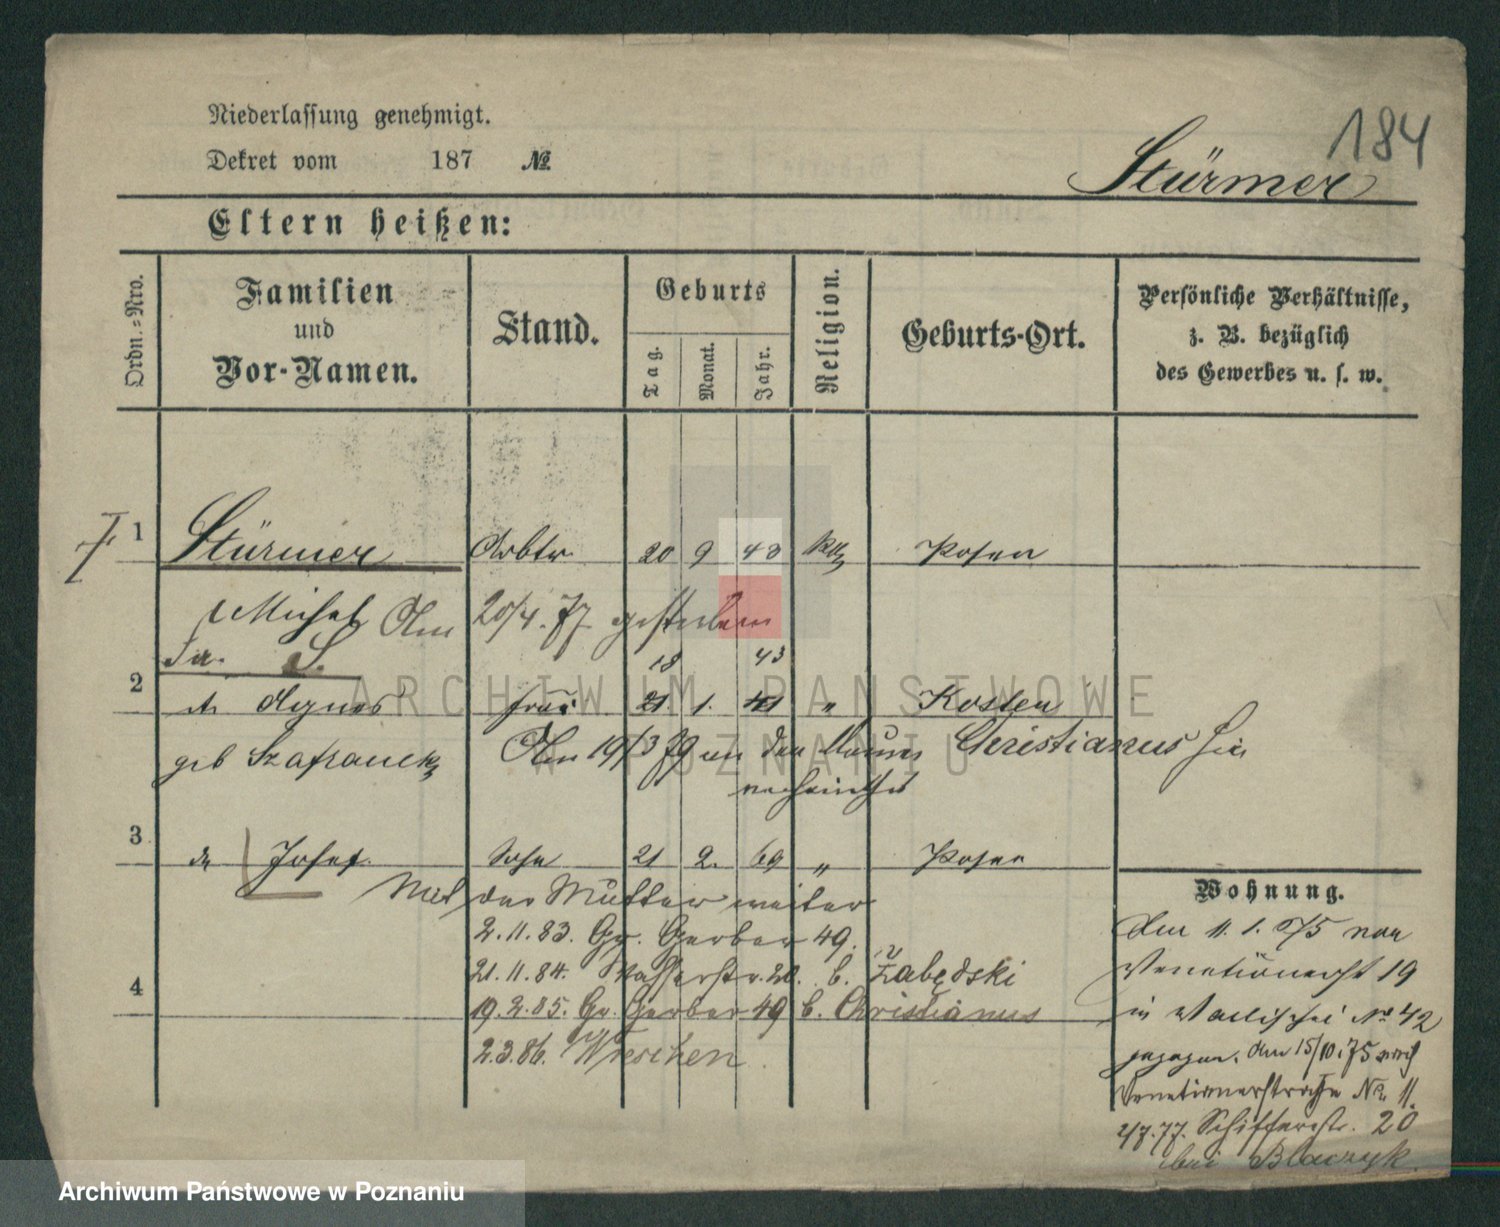 184
Niederlassung genehmigt.
Dekret vom 187 №
Stürmer
Eltern heißen:
Ordn.=Nro.
Familien
und
Vor-Namen.
Stand.
Geburts
Tag.
Monat.
Jahr.
Religion.
Geburts-Ort.
Persönliche Verhältnisse,
z. B. bezüglich
des Gewerbes u. s. w.
1 Stürmer Arbtr. 20 9 43 kth Posen
Michal Am 20/4. 77 gestorben
S.
18 43
2 Agnes Frau 21. 1. 41 " Kosten
geb Szafranck Am 19/3 79 an den Christianus hier
verheirathet
3 do Josef. Sohn 21 2. 69 " Posen
Mit der Mutter weiter
2.11.83. Gr. Gerber 49.
21.11.84. Wasserstr. 20. b. Żabędski
4
19.2.85. Gr. Gerber 49 b. Christianus
2.3.86. Wreschen.
Wohnung.
Den 11. 1. 75 von
Venetianerst 19
in Wallischei No 42
gezogen. den 15/10.75 nach
Venetianerstraße No. 11.
2/7.77. Schifferstr. 20
bei Blaczyk.
ARCHIWUM PAŃSTWOWE
W POZNANIU
Archiwum Państwowe w Poznaniu